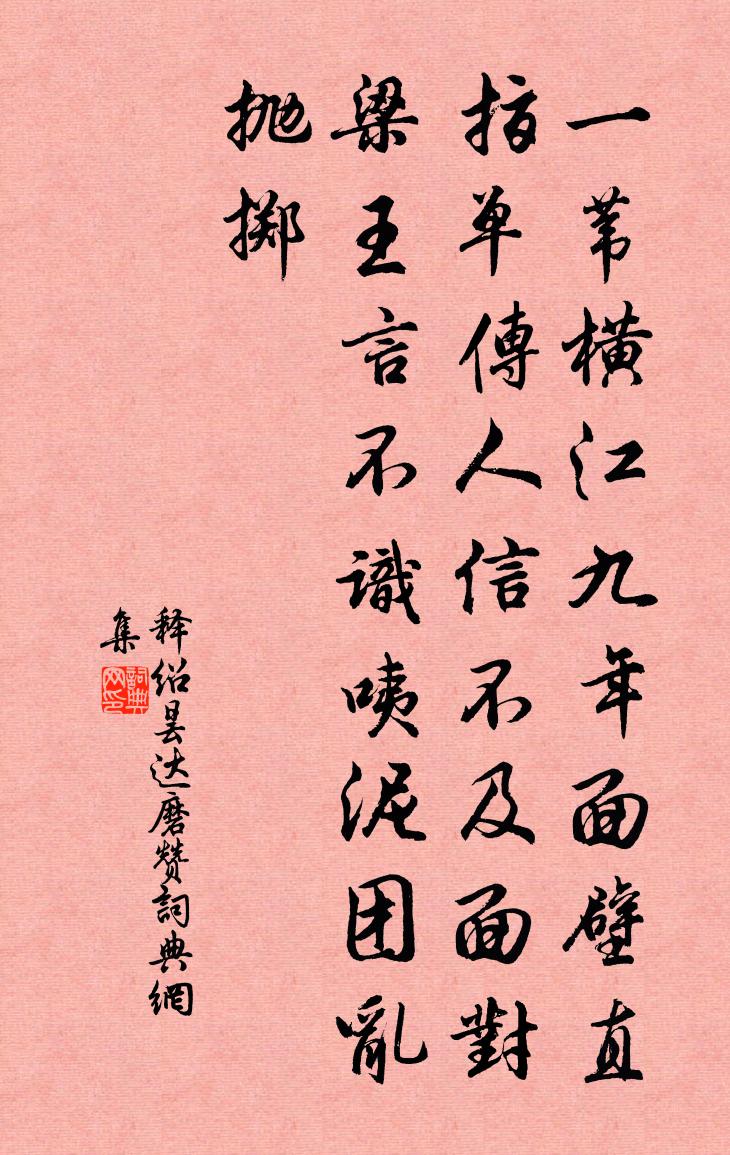 一苇横江九年面壁直
指单傳人信不及面對
梁王言不識咦泥团亂
抛掷
释绍昙达磨赞詞典網
集
詞典
网印